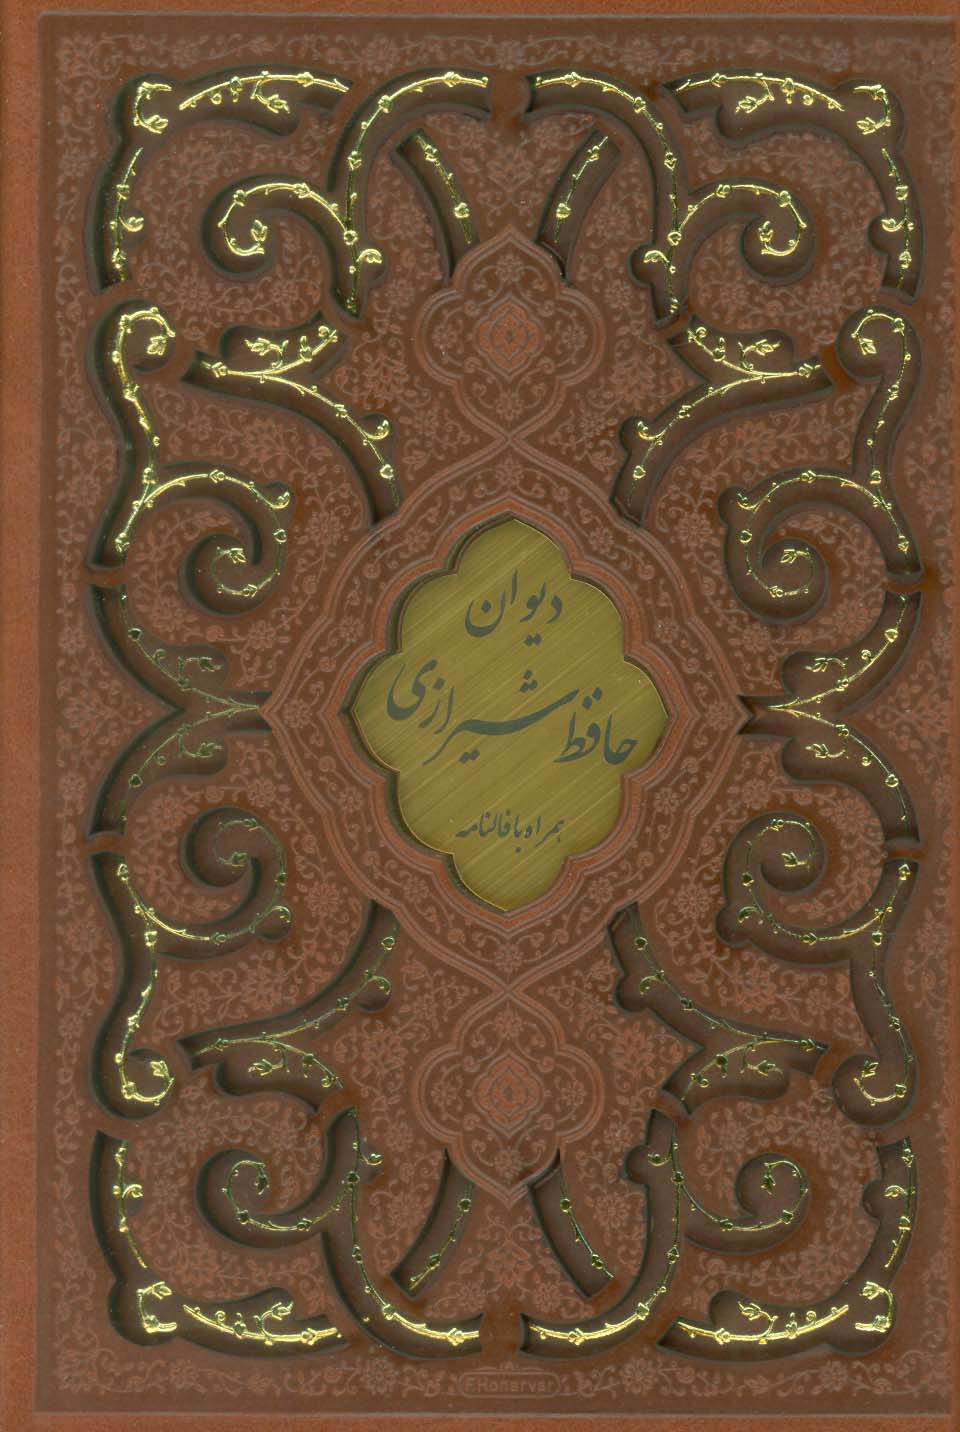 دیوان
حافظ شیرازی
همراه با فالنامه
F.Honarvar